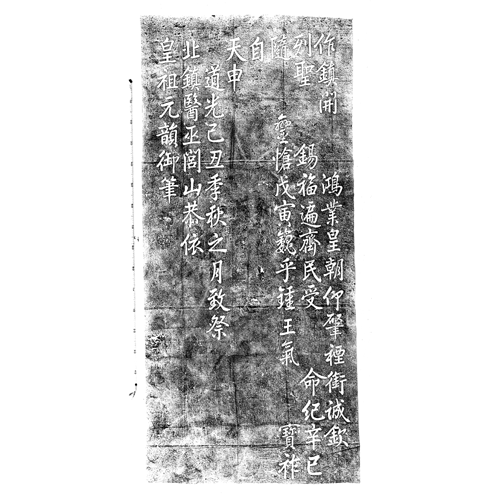 作鎮開　鴻業皇朝仰肇禋銜誠欽
列聖　錫福遍齊民受　命紀辛巳
隨　鑾愴戊寅巍乎鍾王氣　寶祚
自
天申
道光己丑季秋之月致祭
北鎮醫巫閭山恭依
皇祖元韻御筆